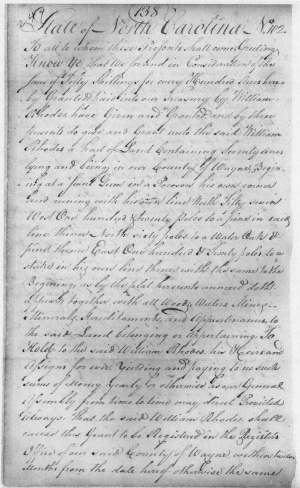 (138)
State of North Carolina No 102
To all to whom these Presents shall come Greeting
Know Ye that We for and in Consideration of the
Sum of Fifty Shillings for every Hundred Acres hereby
by Granted paid into our Treasury by William
Rhodes have Given and Granted and by these
presents do give and Grant unto the said William
Rhodes a Tract of Land Containing Seventy acres
lying and being in our County of Wayne, Begin-
ing at a Gum in a Pocoson his own corner
and runing with his own line North Fifty seven
West One hundred & Seventy Poles to a pine in said
line thence North sixty poles to a Water Oak &
pine thence East One hundred & Seventy poles to a
stake in his own line thence with the same to the
Beginning as by the plat hereunto annexed doth
Appear, together with all Woods Waters Mines
Minerals Hereditaments and Appurtenances to
the said Land belonging or Appertaining To
Hold to the said William Rhodes his Heirs and
Assigns for ever Yielding and paying to us such
sums of Money Yearly or otherwise as our General
Assembly from time to time may direct Provided
always That the said William Rhodes shall
cause this Grant to be Registered in the Registers
Office of our said County of Wayne within twelve
Months from the date hereof otherwise the same